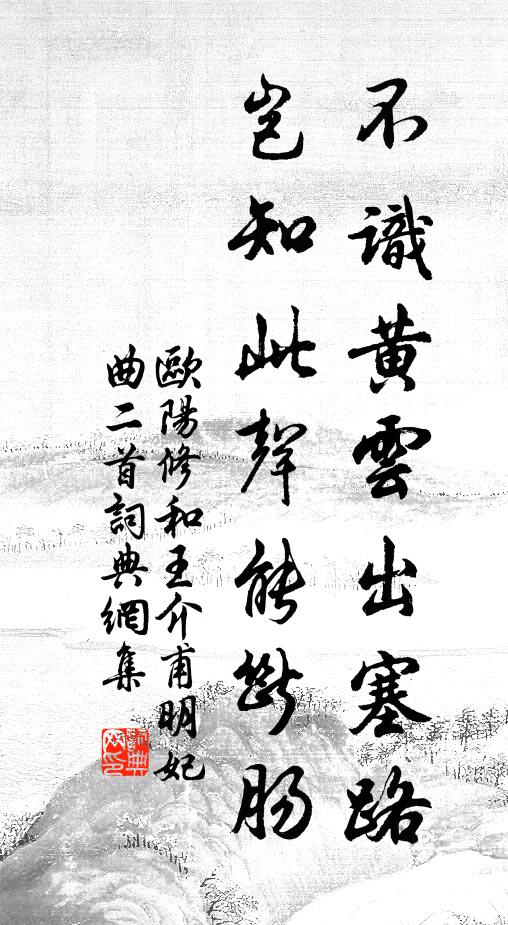 不識黃雲出塞路
豈知此聲能斷腸
歐陽修和王介甫明妃
曲二首詞典網集